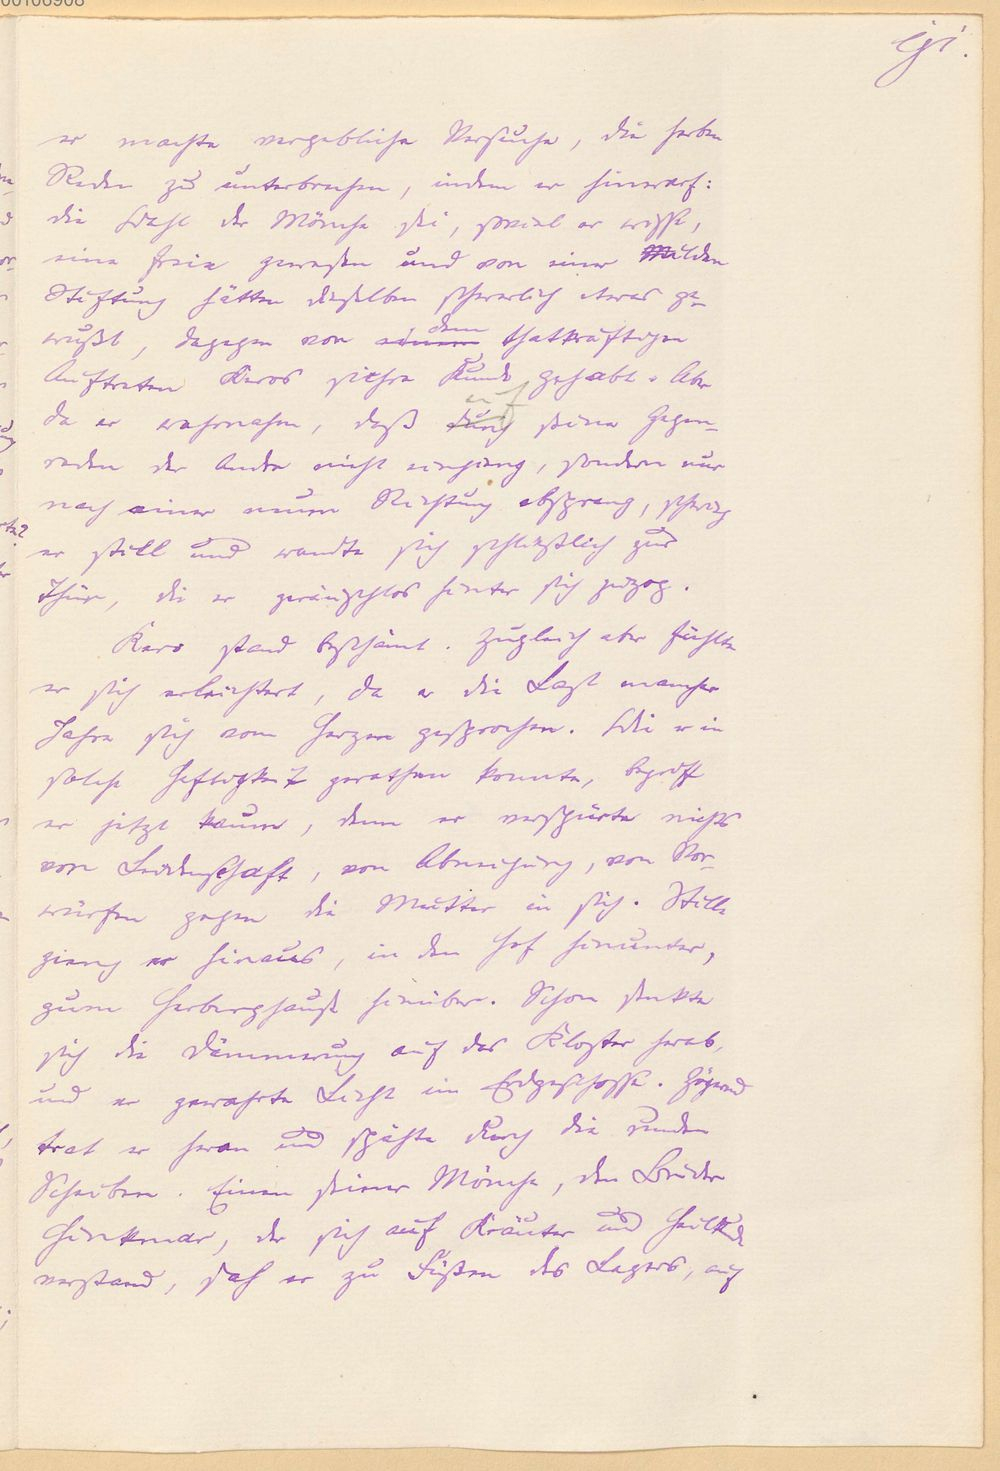 er machte vergebliche Versuche, die herben
Reden zu unterbrechen, indem er hinwarf:
die Wahl der Mönche sei, soviel er wisse,
eine freie gewesen und von einer milden
Stiftung hätten dieselben schwerlich etwas ge-
wußt, dagegen von dem thatkräftigen
Auftreten Keros sichre Kunde gehabt. Aber
da er wahrnahm, daß auf seine Gegen-
reden der Andre nicht einging, sondern nur
nach einer neuen Richtung absprang, schwieg
er still und wandte sich schließlich zur
Thür, die er geräuschlos hinter sich zuzog.
Kero stand beschämt. Zugleich aber fühlte
er sich erleichtert, da er die Last mancher
Jahre sich vom Herzen gesprochen. Wie er in
solche Heftigkeit gerathen konnte, begriff
er jetzt kaum, denn er verspürte nichts
von Leidenschaft, von Abneigung, von Vor-
würfen gegen die Mutter in sich. Stille
gieng er hinaus, in den Hof hinunter,
zum Herberghause hinüber. Schon senkte
sich die Dämmerung auf das Kloster herab,
und er gewahrte Licht im Erdgeschosse. Zögernd
trat er heran und spähte durch die runden
Scheiben. Einen seiner Mönche, den Bruder
Hinkmar, der sich auf Kräuter und Heilkunde
verstand, sah er zu Füßen des Lagers, auf